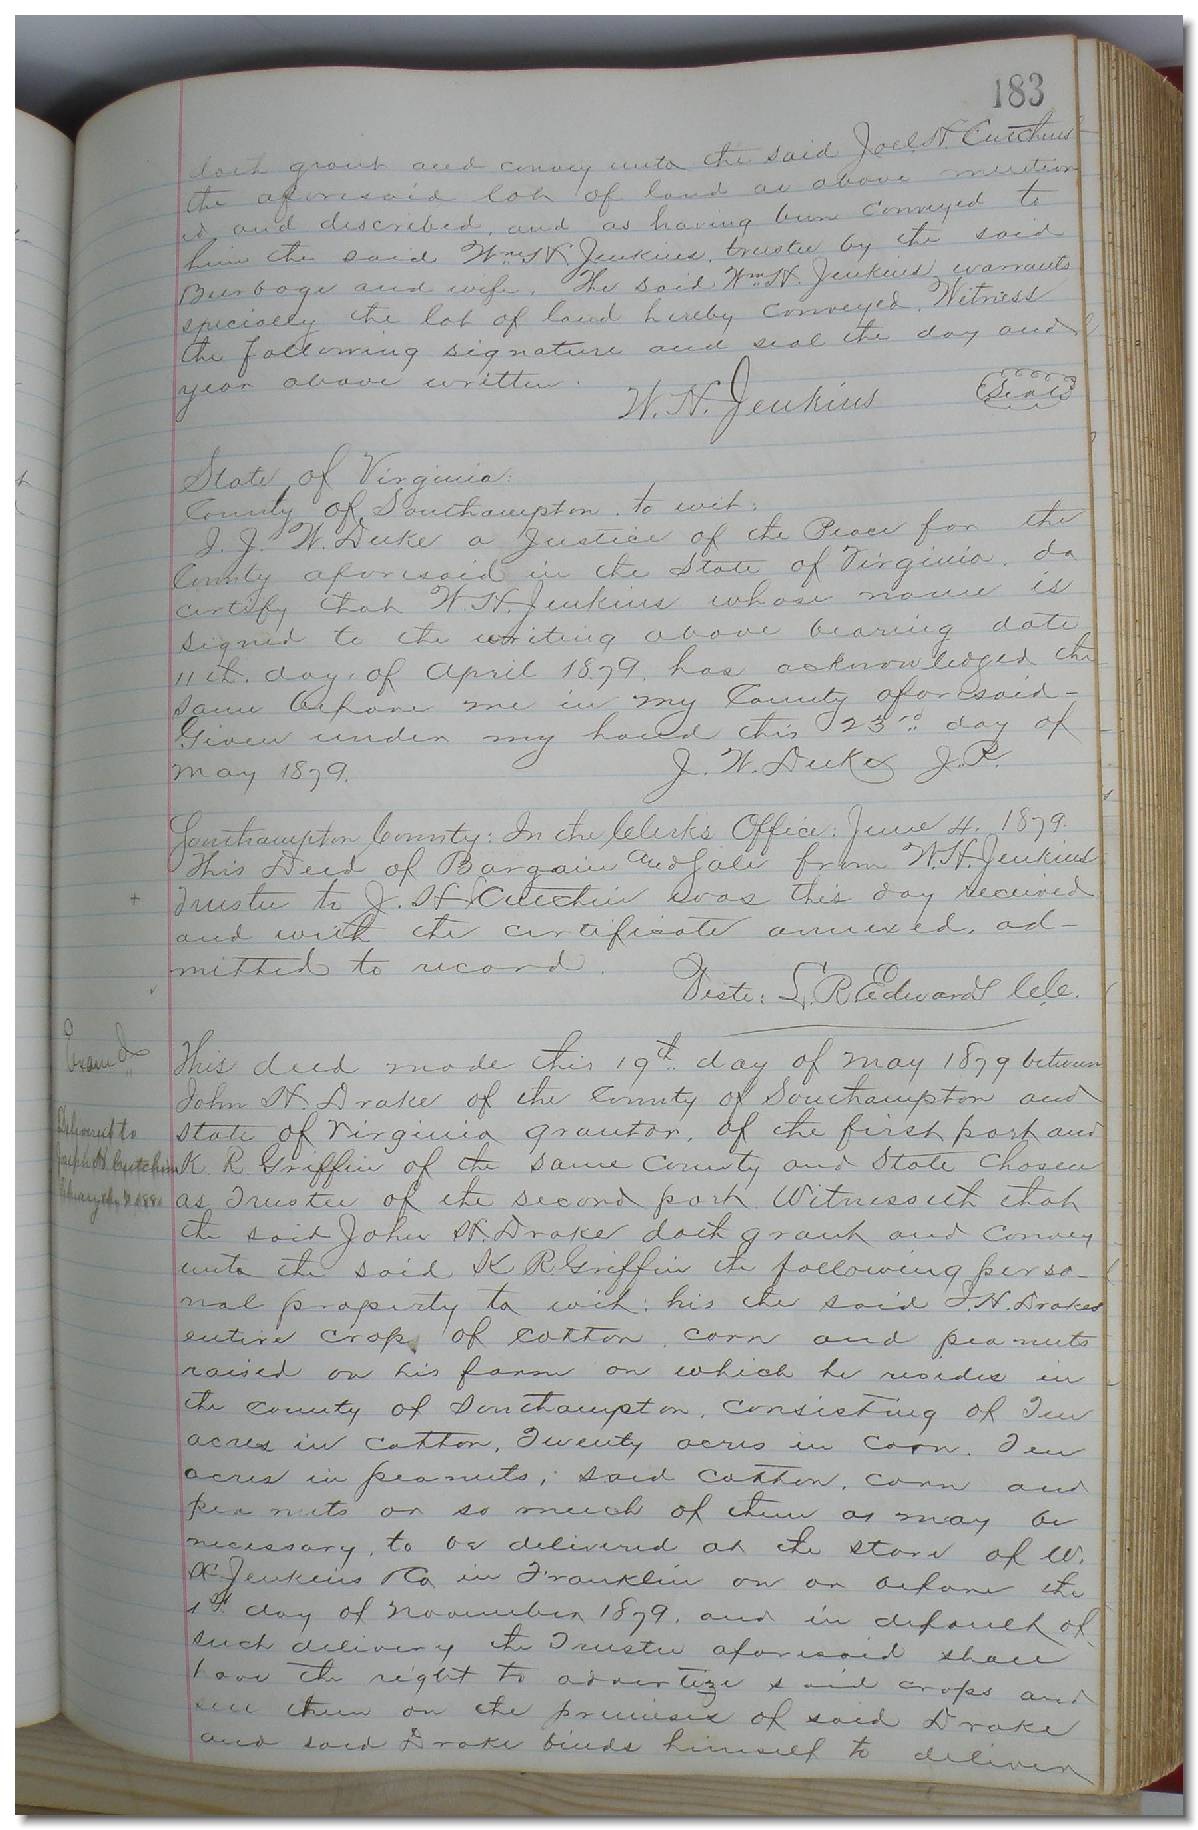 183
doth grant and convey unto the said Joel H. Cutchins
the aforesaid lot of land as above mention
ed and described, and as having been conveyed to
him the said Wm H Jenkins, trustee by the said
Burbage and wife. The said Wm H. Jenkins warrants
specially the lot of land hereby conveyed. Witness
the following signature and seal the day and
year above written.
W. H. Jenkins (Seal)
State of Virginia:
County of Southampton. to wit:
I. J. W. Duke a Justice of the Peace for the
County aforesaid in the State of Virginia. do
certify that W. H. Jenkins whose name is
signed to the writing above bearing date
11th. day. of April 1879. has acknowledged the
same before me in my County aforesaid-
Given under my hand this 23rd day of
May 1879. J. W. Duke J.P.
Southampton County: In the Clerks Office: June 4. 1879.
This Deed of Bargain and Sale from W. H. Jenkins
Trustee to J. H. Cutchin was this day received
and with the certificate annexed, ad-
mitted to record.
Teste: L. R. Edwards C.C.
Exam'd
Delivered to
Joseph H. Cutchins
This deed made this 19th day of May 1879 between
John H. Drake of the County of Southampton and
State of Virginia grantor, of the first part and
K. R. Griffin of the same County and State chosen
as Trustee of the second part Witnesseth that
the said John H. Drake doth grant and convey
unto the said K R. Griffin the following perso-
nal property to wit: his the said J. H. Drakes
entire crop of cotton, corn and peanuts
raised on his farm on which he resides in
the County of Southampton, consisting of Ten
acres in cotton, Twenty acres in corn. Ten
acres in peanuts; said cotton, corn and
peanuts or so much of them as may be
necessary, to be delivered at the store of W.
H. Jenkins & Co in Franklin on or before the
1st day of November 1879. and in default of
such delivery the Trustee aforesaid shall
have the right to advertize said crops and
sell them on the premises of said Drake
and said Drake binds himself to deliver